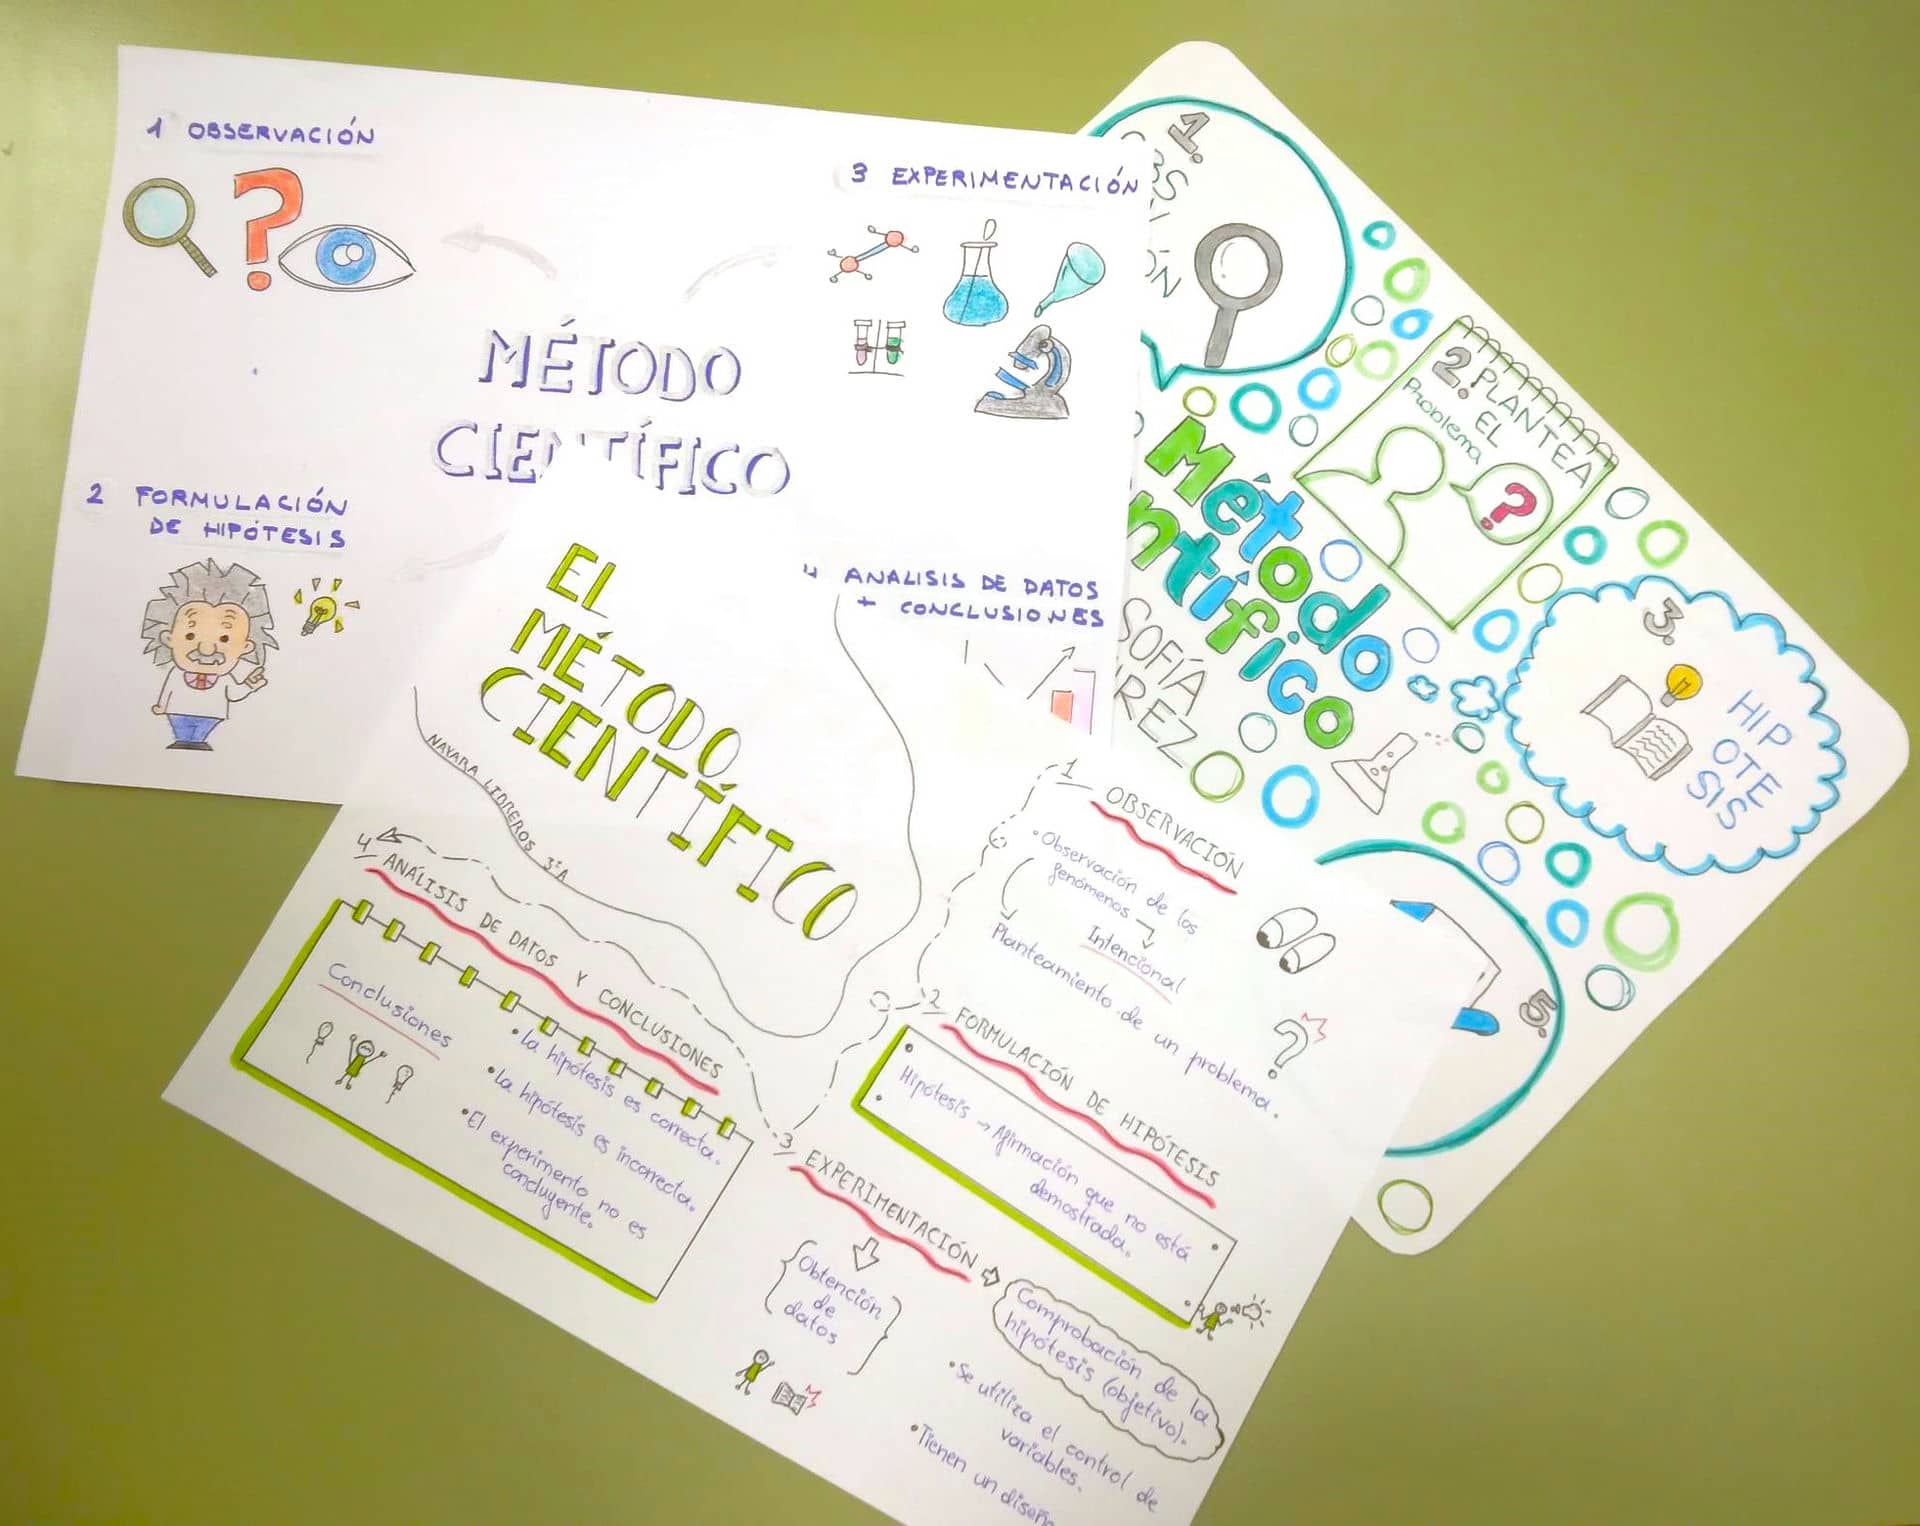 1 OBSERVACIÓN
MÉTODO
CIENTÍFICO
2 FORMULACIÓN
DE HIPÓTESIS
3 EXPERIMENTACIÓN
4 ANALISIS DE DATOS
+ CONCLUSIONES
EL
MÉTODO
CIENTÍFICO
NAYARA LIBREROS 3ºA
1 OBSERVACIÓN
• Observación de los
fenómenos →
Intencional
Planteamiento de un problema.
?
2 FORMULACIÓN DE HIPÓTESIS
Hipótesis → Afirmación que no está
demostrada.
3 EXPERIMENTACIÓN
Obtención
de
datos
Comprobación de la
hipótesis (objetivo).
• Se utiliza el control de
variables.
• Tienen un diseñ
4 ANÁLISIS DE DATOS Y CONCLUSIONES
Conclusiones
• La hipótesis es correcta.
• La hipótesis es incorrecta.
• El experimento no es
concluyente.
1.
BS
ÓN
2. PLANTEA
EL
Problema
?
Método
ntífico
SOFÍA
REZ
3.
HIP
OTE
SIS
5.